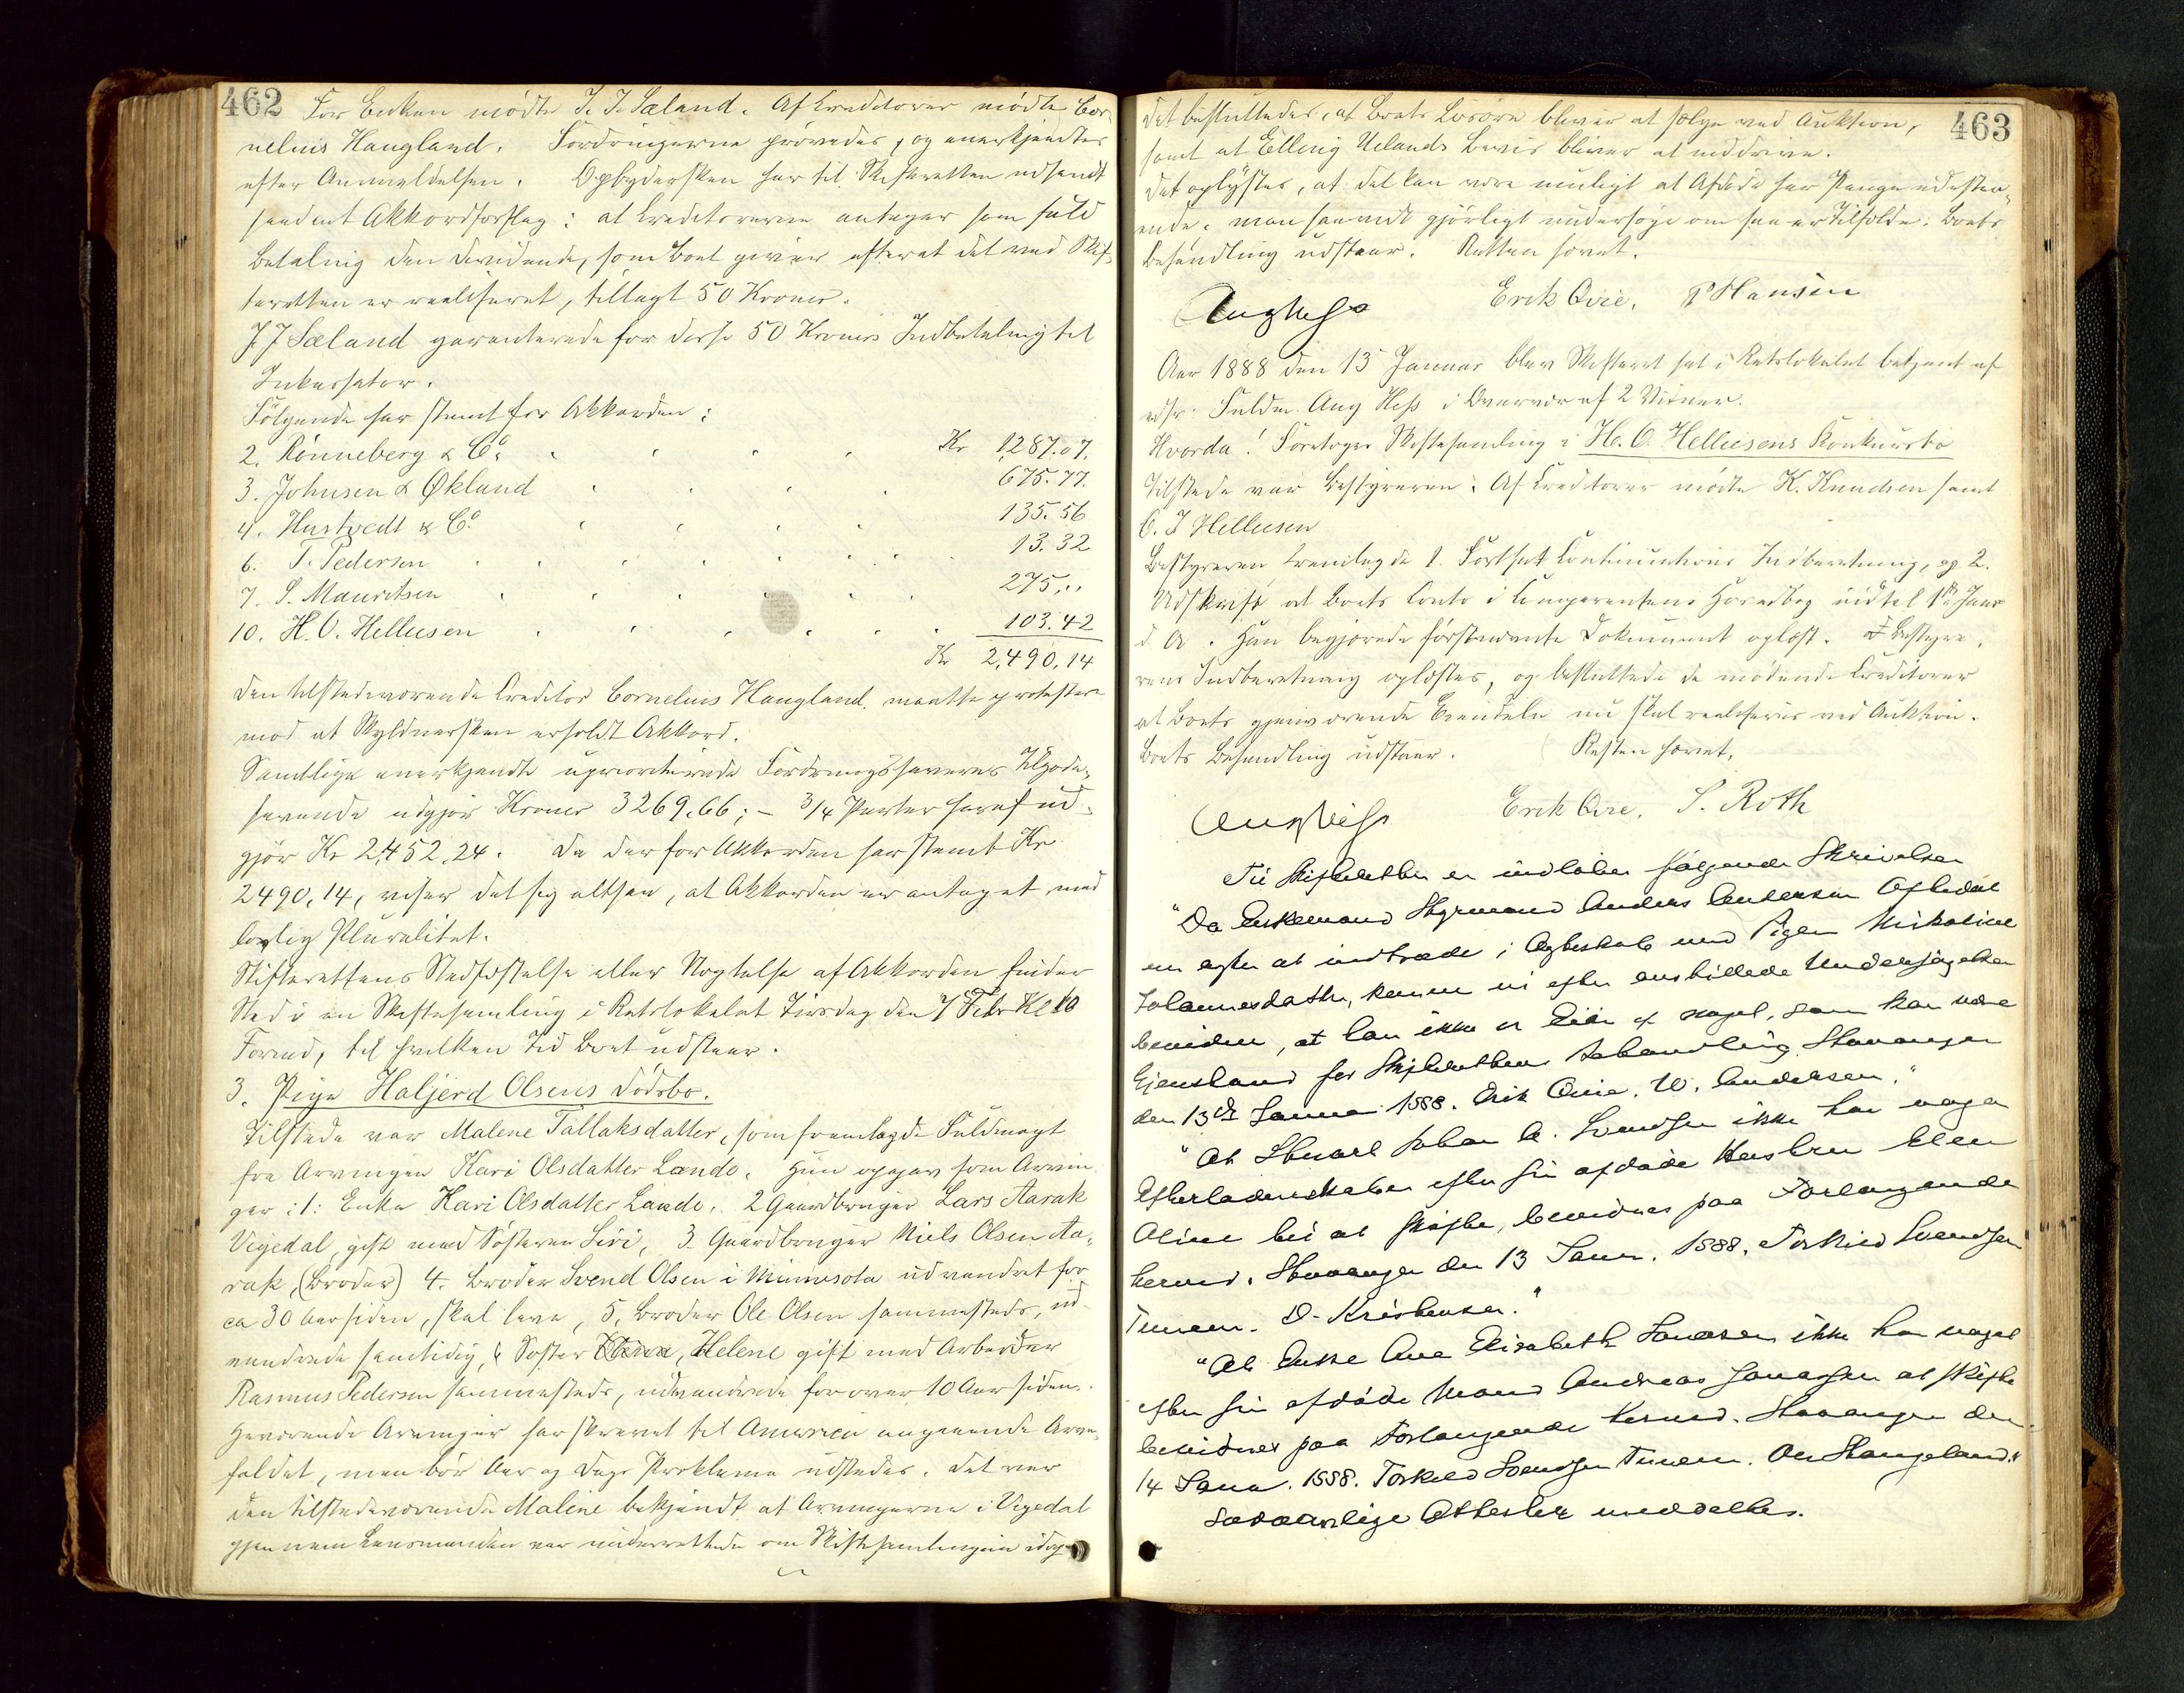 462
For Enken mødte J. J. Sæland. Af Kreditorer mødte Cor-
nelius Haugland. Fordringerne prøvedes, og anerkjendtes
efter Anmeldelsen. Opbydersken har til Skifteretten indsendt
saadant Akkordforslag: at Kreditorerne antager som fuld
Betaling den Dividende, som Boet giver efterat det ved Skif-
teretten er realiseret, tillagt 50 Kroner.
J J Sæland garanterede for disse 50 Kroners Indbetaling til
Inkassator.
Følgende har stemt for Akkorden:
2. Rönneberg & Co. Kr 1,287.07.
3. Johnsen & Økland 675.77.
4. Hustvedt & Co. 135.56
6. T. Pedersen 13.32
7. S. Mauritsen 275,,
10. H. O. Hellesen 103.42
Kr 2,490,14
Den tilstedeværende Kreditor Cornelius Haugland maatte protestere
mod at Skyldnersken erholdt Akkord.
Samtlige anerkjendte uprioriterede Fordringshaveres Tilgode-
havende udgjør Kroner 3269.66; – 3/4 Parter heraf ud-
gjør Kr 2,452,24. Da der for Akkorden har stemt Kr
2490,14, viser det sig altsaa, at Akkorden er antaget med
lovlig Pluralitet.
Skifterettens Stadfæstelse eller Nægtelse af Akkorden finder
Sted i en Skiftesamling i Retslokalet Tirsdag den 7 Febr Kl 10
Formd, til hvilken Tid Boet udstaar.
3. Pige Haljerd Olsens Dødsbo.
Tilstede var Malene Tallaksdatter, som fremlagde Fuldmagt
fra Arvingen Kari Olsdatter Lande. Hun opgav som Arvin-
ger: 1: Enke Kari Olsdatter Lande, 2 Gaardbruger Lars Aarak
Vigedal, gift med Søsteren Siri, 3. Gaardbruger Niels Olsen Aa-
rak, (Broder) 4. Broder Svend Olsen i Minnesota udvandret for
ca 30 Aar siden, skal leve, 5. Broder Ole Olsen sammesteds, ud-
vandrede samtidig, 6 Søster Helene gift med Arbeider
Rasmus Pedersen sammesteds, udvandrede for over 10 Aar siden.
Hjemværende Arvinger har skrevet til America angaaende Arve-
faldet, men bør Aar og Dags Proklama udstedes. Det var
den tilstedeværende Maline bekjendt at Arvingerne i Vigedal
gjennem Lensmanden var underrettede om Skiftesamlingen idag
463
Det besluttedes, at Boets Løsøre bliver at sælge ved Auktion,
samt at Elling Uelands Bevis bliver at inddrive.
Det oplystes, at det kan være muligt at Afdøde har Penge udestaa-
ende. Man saavidt gjørligt undersøge om saa er Tilfælde. Boets
Behandling udstaar. Retten hævet.
Aug Hess Erik Qvie, P Hansen
Aar 1888 den 13 Januar blev Skifteret sat i Retslokalet betjent af
edsv. Fuldm. Aug Hess i Overvær af 2 Vidner.
Hvorda! Foretoges Skiftesamling i H. O. Hellesens Konkursbo
Tilstede var Bestyreren. Af Kreditorer mødte K. Knudsen samt
O. J Hellesen
Bestyreren fremlagde 1. Fortsat Continuations Indberetning, og 2.
Udskrift at Boets Conto i Comparentens Hovedbog indtil 1ste Janr
d. A. Han begjærede førstnævnte Dokument oplæst. Bestyre-
rens Indberetning oplæstes, og besluttede de mødende Kreditorer
at Boets gjenværende Eiendele nu skal realiseres ved Auktion.
Boets Behandling udstaar. Retten hævet.
Aug Hess Erik Qvie, S. Roth
Til Skifteretten er indløben følgende Skrivelser
"Da Enkemand Styrmand Anders Andersen Afledal
en agter at indtræde i Ægteskab med Pigen Nikoline
Johannesdatter, kunne vi efter anstillede Undersøgelser
bevidne, at han ikke er Eier af noget, som kan være
Gjenstand for Skifterettens Behandling. Stavanger
den 13de Januar 1888. Erik Qvie. W. Andersen."
"At Stuart Johan A. Svendsen ikke har noget
Efterladenskaber efter sin afdøde Hustru Elen
Aline til at skifte, bevidnes paa Forlangende
herved. Stavanger den 13 Janr. 1888. Torkild Svendsen
Tuneem. O. Kristensen."
"At Enke Ane Elisabeth Jonassen ikke har noget
efter sin afdøde Mand Andreas Jonassen at skifte
bevidnes paa Forlangende herved. Stavanger den
14 Janr. 1888. Torkild Svendsen Tuneem. Ole Stangeland."
Sædvanlige Attester meddeltes.